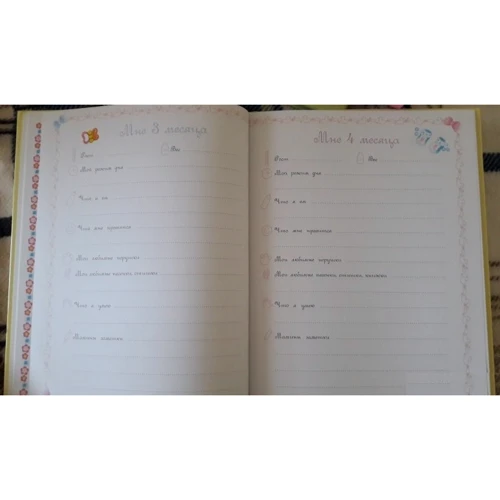 Мне 3 месяца
Рост
Вес
Мой режим дня
Что я ем
Что мне нравится
Мои любимые игрушки
Мои любимые
Что я умею
Мамины заметки
Мне 4 месяца
Рост
Вес
Мой режим дня
Что я ем
Что мне нравится
Мои любимые игрушки
Мои любимые песенки,
Что я умею
Мамины заметки